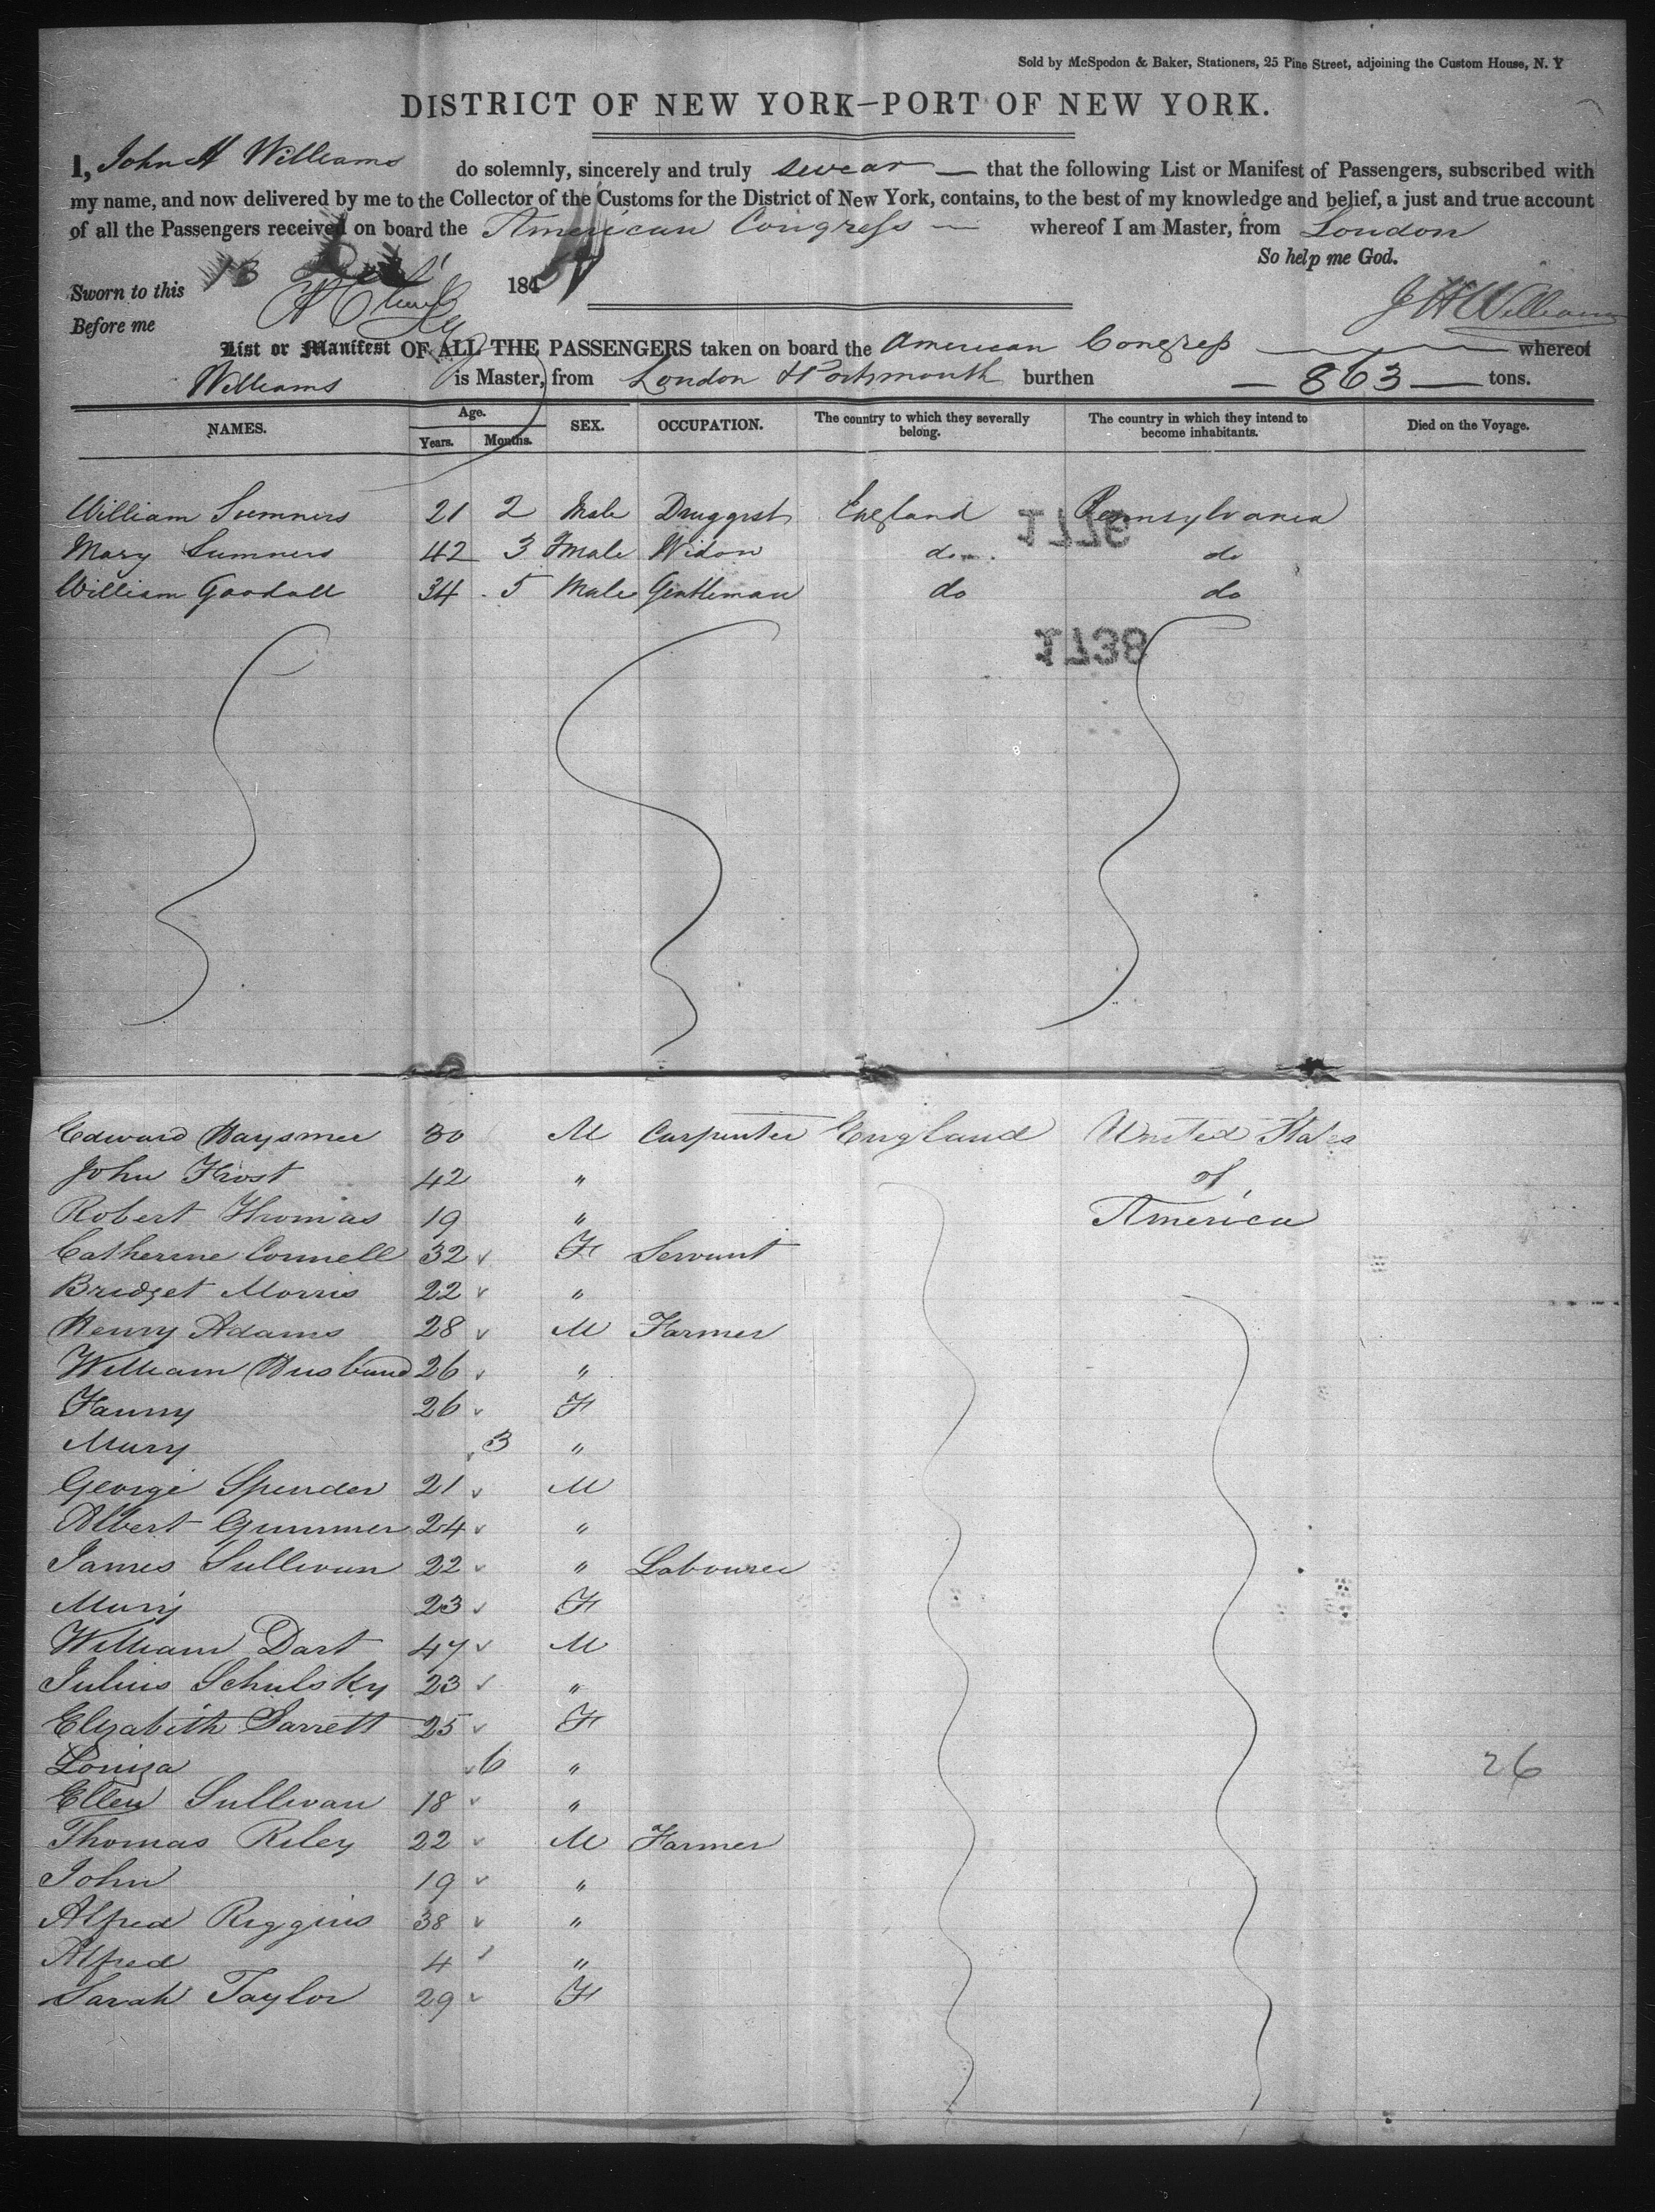 Sold by McSpedon & Baker, Stationers, 25 Pine Street, adjoining the Custom House, N. Y
DISTRICT OF NEW YORK—PORT OF NEW YORK.
I, John H Williams do solemnly, sincerely and truly swear — that the following List or Manifest of Passengers, subscribed with
my name, and now delivered by me to the Collector of the Customs for the District of New York, contains, to the best of my knowledge and belief, a just and true account
of all the Passengers received on board the American Congress — whereof I am Master, from London
So help me God.
Sworn to this 13 184
Before me
J H Williams
List or Manifest OF ALL THE PASSENGERS taken on board the American Congress whereof
Williams is Master, from London & Portsmouth burthen — 863 — tons.
NAMES. Age. Years. Months. SEX. OCCUPATION. The country to which they severally belong. The country in which they intend to become inhabitants. Died on the Voyage.
William Sumners 21 2 Male Druggist England Pennsylvania
1776
Mary Sumners 42 3 Fmale Widow do do
William Goodall 34 5 Male Gentleman do do
1738
Edward Haysmer 30 M Carpenter England United States
John Frost 42 " of
Robert Thomas 19 " America
Catherine Connell 32 F Servant
Bridget Morris 22 "
Henry Adams 28 M Farmer
William Husband 26 "
Fanny 26 F
Mary 3 "
George Spender 21 M
Albert Gummer 24 "
James Sullivan 22 " Labourer
Mary 23 F
William Dart 47 M
Julius Schulsky 23 "
Elizabeth Sarrett 25 F
Louiza 6 " 26
Ellen Sullivan 18 "
Thomas Riley 22 M Farmer
John 19 "
Alfred Riggins 38 "
Alfred 4 "
Sarah Taylor 29 F